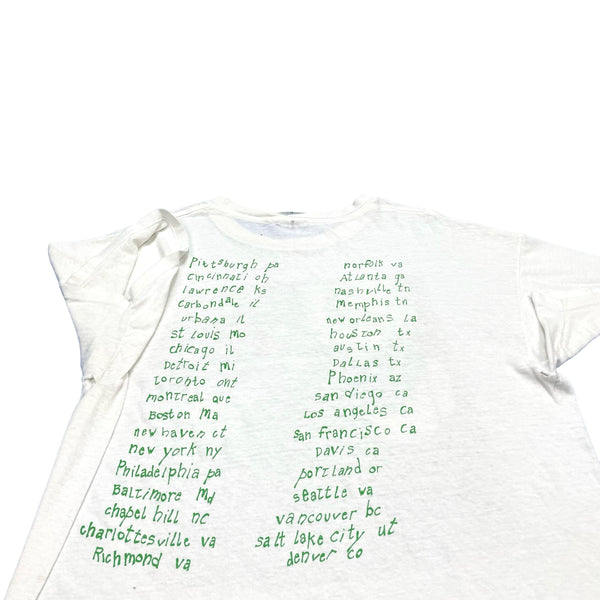 Pittsburgh pa
cincinnati oh
lawrence ks
carbondale il
urbana il
st Louis mo
chicago il
Detroit mi
Toronto ont
montreal que
Boston Ma
new haven ct
new york ny
Philadelphia pa
Baltimore Md
chapel hill nc
charlottesville va
Richmond va
norfolk va
Atlanta ga
nashville tn
Memphis tn
new orleans La
houston tx
austin tx
Dallas tx
Phoenix az
san diego ca
Los angeles ca
san francisco ca
Davis ca
portland or
seattle wa
vancouver bc
salt lake city ut
denver co